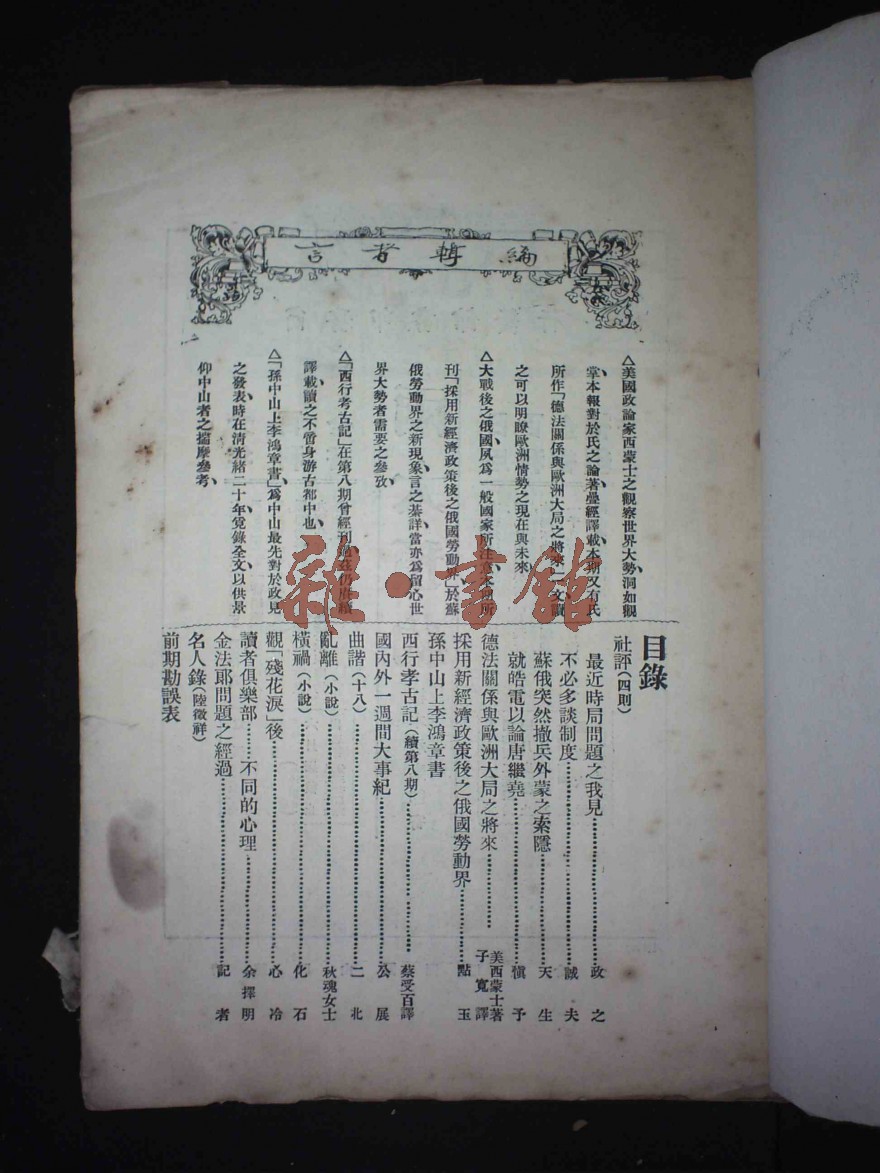 編輯者言
△美國政論家西蒙士之觀察世界大勢洞如觀
掌本報對於氏之論著疊經譯載本期又有氏
所作「德法關係與歐洲大局之將來」一文讀
之可以明瞭歐洲情勢之現在與未來
△大戰後之俄國夙爲一般國家所注意本期所
刊「採用新經濟政策後之俄國勞動界」於蘇
俄勞動界之新現象言之綦詳當亦爲留心世
界大勢者需要之參攷
△「西行考古記」在第八期曾經刊過茲仍賡續
譯載讀之不啻身游古都中也
△「孫中山上李鴻章書」爲中山最先對於政見
之發表時在清光緒二十年覓錄全文以供景
仰中山者之揣摩參考
目錄
社評(四則)
最近時局問題之我見 政之
不必多談制度 誠夫
蘇俄突然撤兵外蒙之索隱 天生
就皓電以論唐繼堯 愼予
德法關係與歐洲大局之將來 美西蒙士著 子寬譯
採用新經濟政策後之俄國勞動界 點玉
孫中山上李鴻章書
西行孝古記(續第八期) 蔡受百譯
國內外一週間大事紀 公展
曲諧(十八) 二北
亂離(小說) 秋魂女士
橫禍(小說) 化石
觀「殘花淚」後 心冷
讀者俱樂部……不同的心理 余擇明
金法郎問題之經過 記者
名人錄(陸徵祥)
前期勘誤表
雜·書館